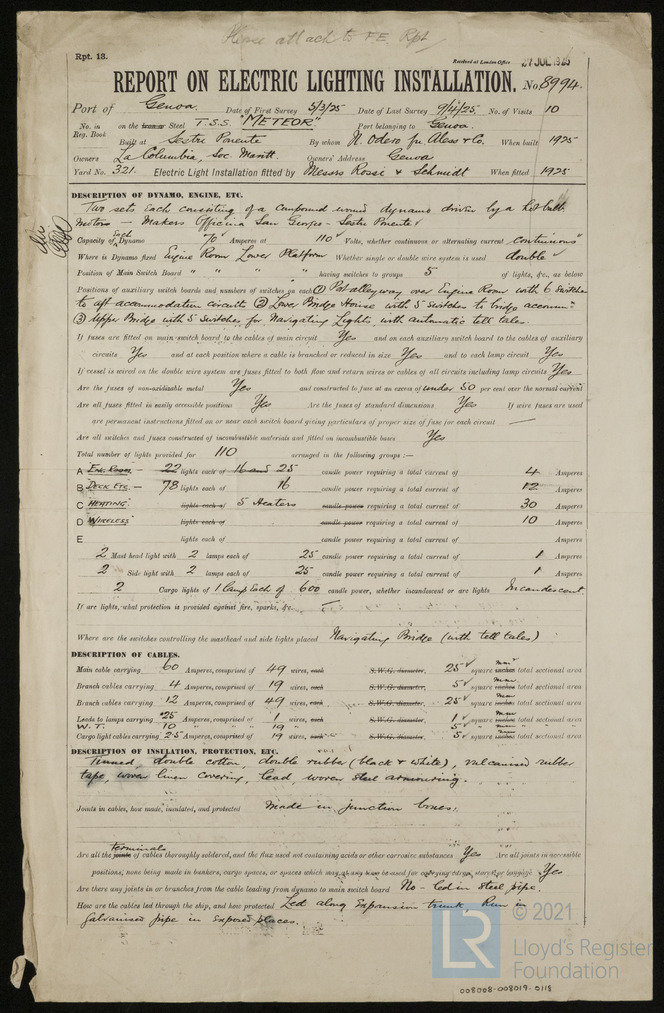 Please attach to F.E. Rpt
Rpt. 13.
Received at London Office 27 JUL 1925
REPORT ON ELECTRIC LIGHTING INSTALLATION. No. 8994.
Port of Genoa Date of First Survey 5/3/25 Date of Last Survey 9/4/25 No. of Visits 10
No. in Reg. Book on the Iron or Steel T.S.S. "METEOR" Port belonging to Genoa
Built at Sestri Ponente By whom N. Odero fu Aless & Co. When built 1925
Owners La Columbia, Soc. Maritt. Owners' Address Genova
Yard No. 321. Electric Light Installation fitted by Messrs Rossi & Schmidt When fitted 1925
DESCRIPTION OF DYNAMO, ENGINE, ETC.
Two sets each consisting of a compound wound dynamo driven by a Hot bulb
motor — Makers Officina San Giorgio - Sestri Ponente
Capacity of Each Dynamo 70 Amperes at 110 Volts, whether continuous or alternating current continuous
Where is Dynamo fixed Engine Room Lower Platform Whether single or double wire system is used double
Position of Main Switch Board " " " " having switches to groups 5 of lights, &c., as below
Positions of auxiliary switch boards and numbers of switches on each (1) Port alleyway over Engine Room with 6 switches
to aft accommodation circuits (2) Lower Bridge House with 5 switches to bridge accomm.
(3) Upper Bridge with 5 switches for Navigating Lights, with automatic tell tales.
If fuses are fitted on main switch board to the cables of main circuit Yes and on each auxiliary switch board to the cables of auxiliary
circuits Yes and at each position where a cable is branched or reduced in size Yes and to each lamp circuit Yes
If vessel is wired on the double wire system are fuses fitted to both flow and return wires or cables of all circuits including lamp circuits Yes
Are the fuses of non-oxidizable metal Yes and constructed to fuse at an excess of under 50 per cent over the normal current
Are all fuses fitted in easily accessible positions Yes Are the fuses of standard dimensions Yes If wire fuses are used
are permanent instructions fitted on or near each switch board giving particulars of proper size of fuse for each circuit —
Are all switches and fuses constructed of incombustible materials and fitted on incombustible bases Yes
Total number of lights provided for 110 arranged in the following groups :—
A Eng. Room — 22 lights each of 16 and 25 candle power requiring a total current of 4 Amperes
B Deck Etc. — 78 lights each of 16 candle power requiring a total current of 12 Amperes
C HEATING lights each of 5 Heaters candle power requiring a total current of 30 Amperes
D WIRELESS lights each of candle power requiring a total current of 10 Amperes
E lights each of candle power requiring a total current of Amperes
2 Mast head light with 2 lamps each of 25 candle power requiring a total current of 1 Amperes
2 Side light with 2 lamps each of 25 candle power requiring a total current of 1 Amperes
2 Cargo lights of 1 lamp Each of 600 candle power, whether incandescent or arc lights Incandescent
If arc lights, what protection is provided against fire, sparks, &c. —
Where are the switches controlling the masthead and side lights placed Navigating Bridge (with tell tales)
DESCRIPTION OF CABLES.
Main cable carrying 60 Amperes, comprised of 49 wires, each S.W.G. diameter, 25 square inches mm total sectional area
Branch cables carrying 4 Amperes, comprised of 19 wires, each S.W.G. diameter, 5 square inches mm total sectional area
Branch cables carrying 12 Amperes, comprised of 49 wires, each S.W.G. diameter, 25 square inches mm total sectional area
Leads to lamps carrying .25 Amperes, comprised of 1 wires, each S.W.G. diameter, 1 square inches mm total sectional area
W.T. 10 " " 19 " 5 " mm
Cargo light cables carrying 25 Amperes, comprised of 19 wires, each S.W.G. diameter, 5 square inches total sectional area
DESCRIPTION OF INSULATION, PROTECTION, ETC.
Tinned, double cotton, double rubber (black & white), vulcanised rubber
tape, woven linen covering, lead, woven steel armouring.
Joints in cables, how made, insulated, and protected Made in junction boxes.
Are all the joints terminals of cables thoroughly soldered, and the flux used not containing acids or other corrosive substances Yes Are all joints in accessible
positions, none being made in bunkers, cargo spaces, or spaces which may at any time be used for carrying cargo, stores, or baggage Yes
Are there any joints in or branches from the cable leading from dynamo to main switch board No - led in steel pipe.
How are the cables led through the ship, and how protected Led along Expansion trunk. Run in
Galvanised pipe in Exposed places.
© 2021
LR
Lloyd's Register
Foundation
008008-008019-0118